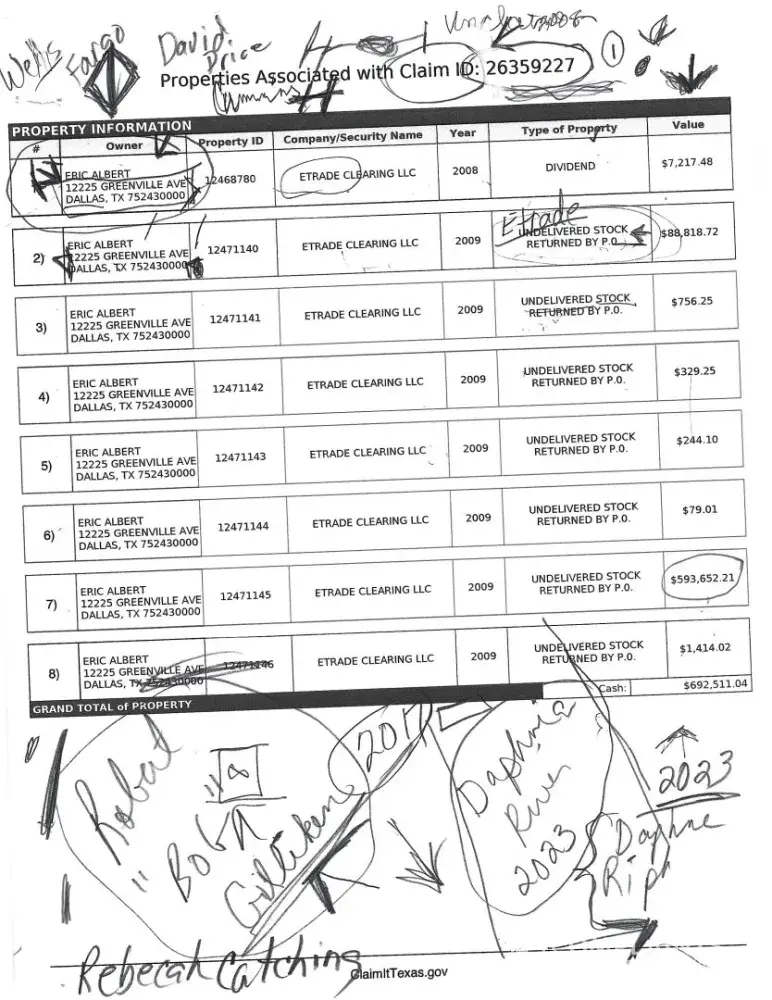 Wells
Fargo
David
Price
Properties Associated with Claim ID: 26359227
1
PROPERTY INFORMATION
# Owner Property ID Company/Security Name Year Type of Property Value
ERIC ALBERT
12225 GREENVILLE AVE
DALLAS, TX 752430000
12468780 ETRADE CLEARING LLC 2008 DIVIDEND $7,217.48
Etrade
2) ERIC ALBERT
12225 GREENVILLE AVE
DALLAS, TX 752430000
12471140 ETRADE CLEARING LLC 2009 UNDELIVERED STOCK
RETURNED BY P.O.
$88,818.72
3) ERIC ALBERT
12225 GREENVILLE AVE
DALLAS, TX 752430000
12471141 ETRADE CLEARING LLC 2009 UNDELIVERED STOCK
RETURNED BY P.O.
$756.25
4) ERIC ALBERT
12225 GREENVILLE AVE
DALLAS, TX 752430000
12471142 ETRADE CLEARING LLC 2009 UNDELIVERED STOCK
RETURNED BY P.O.
$329.25
5) ERIC ALBERT
12225 GREENVILLE AVE
DALLAS, TX 752430000
12471143 ETRADE CLEARING LLC 2009 UNDELIVERED STOCK
RETURNED BY P.O.
$244.10
6) ERIC ALBERT
12225 GREENVILLE AVE
DALLAS, TX 752430000
12471144 ETRADE CLEARING LLC 2009 UNDELIVERED STOCK
RETURNED BY P.O.
$79.01
7) ERIC ALBERT
12225 GREENVILLE AVE
DALLAS, TX 752430000
12471145 ETRADE CLEARING LLC 2009 UNDELIVERED STOCK
RETURNED BY P.O.
$593,652.21
8) ERIC ALBERT
12225 GREENVILLE AVE
DALLAS, TX 752430000
12471146 ETRADE CLEARING LLC 2009 UNDELIVERED STOCK
RETURNED BY P.O.
$1,414.02
GRAND TOTAL of PROPERTY Cash: $692,511.04
Robert
"8"
2023
Daphne
2023
Rebecah Catching
ClaimItTexas.gov